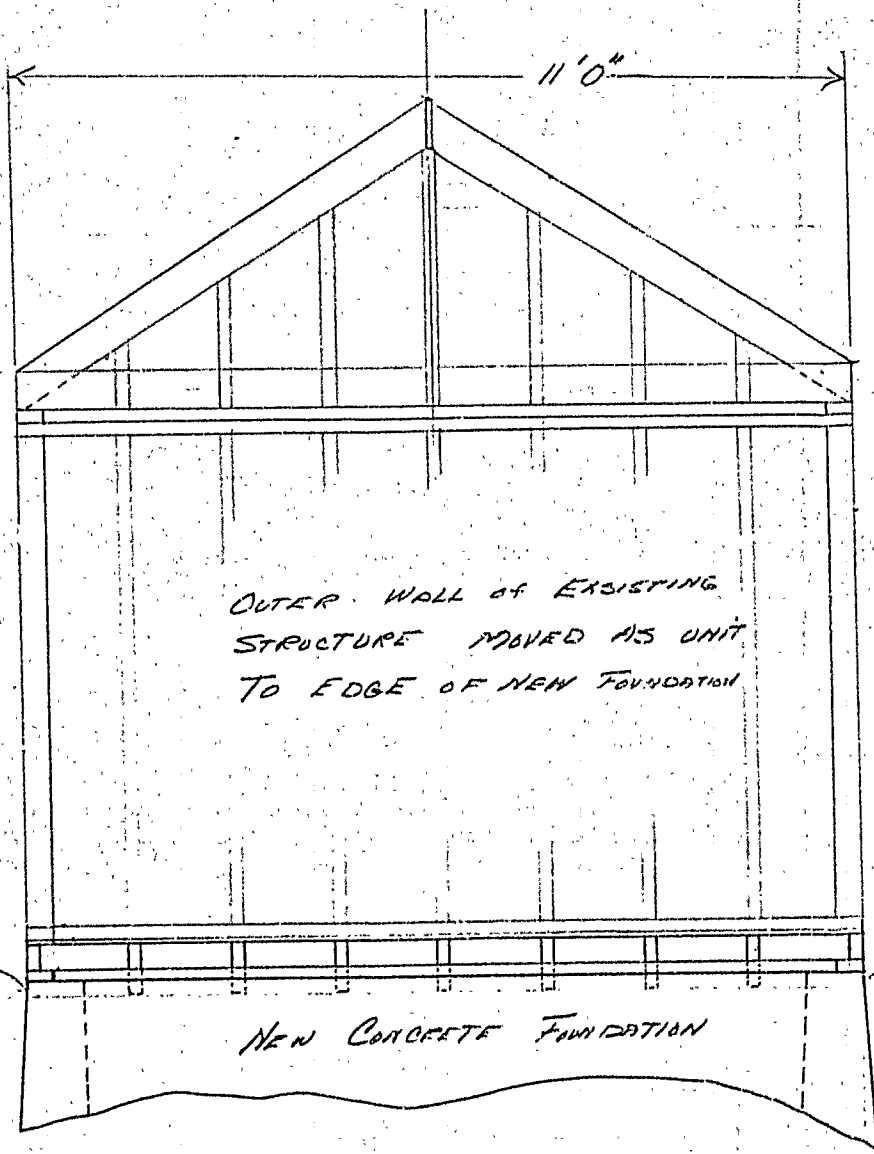 11'0"
OUTER WALL of EXSISTING
STRUCTURE MOVED AS UNIT
TO EDGE OF NEW FOUNDATION
NEW CONCRETE FOUNDATION